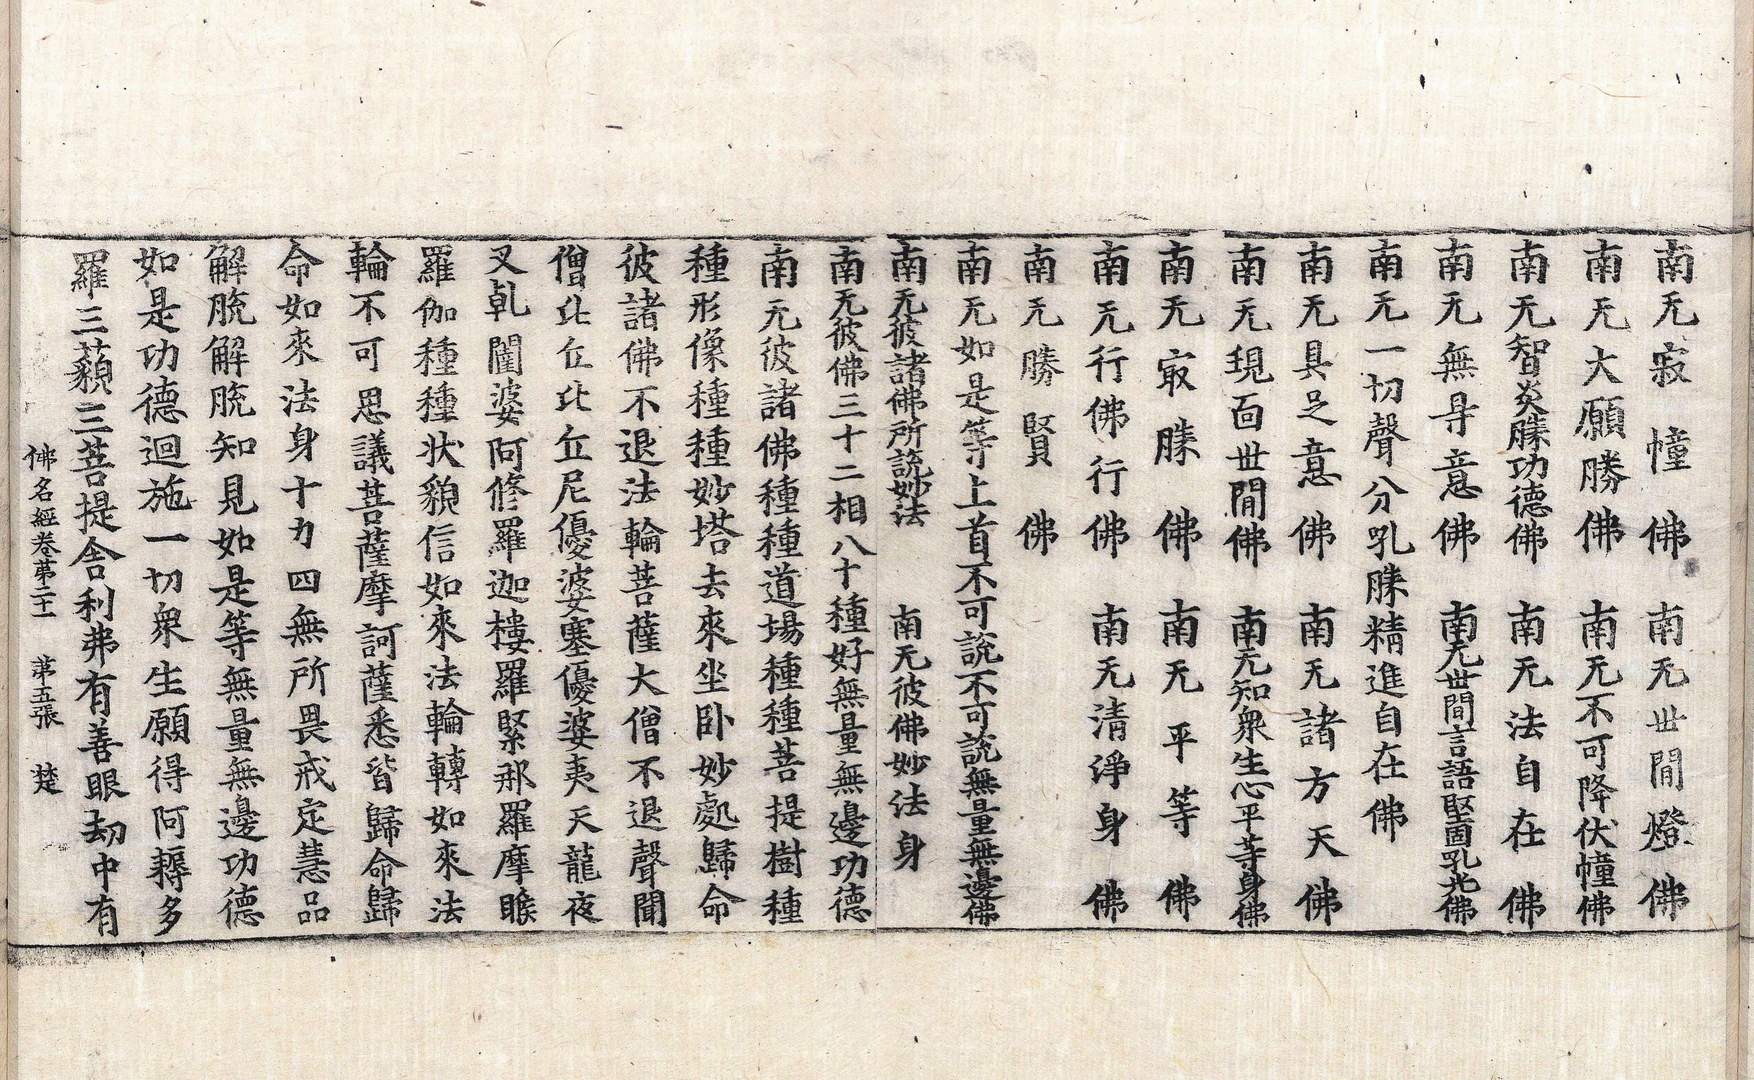 南无寂幢佛　南无世間燈佛
南无大願勝佛　南无不可降伏幢佛
南无智炎勝功德佛　南无法自在佛
南无無㝵意佛　南无世間言語堅固吼光佛
南无一切聲分吼勝精進自在佛
南无具足意佛　南无諸方天佛
南无現面世間佛　南无知衆生心平等身佛
南无㝡勝佛　南无平等佛
南无行佛行佛　南无清淨身佛
南无勝賢佛
南无如是等上首不可說不可說無量無邊佛
南无彼諸佛所說妙法　南无彼佛妙法身
南无彼佛三十二相八十種好無量無邊功德
南无彼諸佛種種道場種種菩提樹種
種形像種種妙塔去來坐卧妙處歸命
彼諸佛不退法輪菩薩大僧不退聲聞
僧比丘比丘尼優婆塞優婆夷天龍夜
叉乹闥婆阿修羅迦樓羅緊那羅摩睺
羅伽種種状貌信如來法輪轉如來法
輪不可思議菩薩摩訶薩悉皆歸命歸
命如來法身十力四無所畏戒定慧品
解脫解脫知見如是等無量無邊功德
如是功德迴施一切衆生願得阿耨多
羅三藐三菩提舍利弗有善眼劫中有
佛名經卷第二十一　第五張　楚